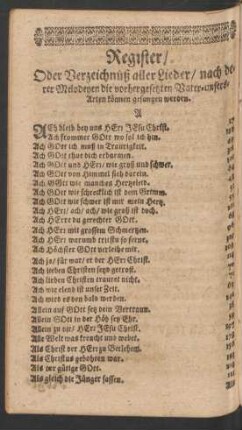 Register/
Oder Verzeichnüß aller Lieder/ nach de-
rer Melodeyen die vorhergesetzten Vater-unsers-
Arien können gesungen werden.
A
ACh bleib bey uns HErr JEsu Christ.
Ach frommer GOtt wo sol ich hin.
Ach GOtt ich muß in Traurigkeit.
Ach GOtt thue dich erbarmen.
Ach GOtt und HErr/ wie groß und schwer.
Ach GOtt von Himmel sieh darein.
Ach GOtt wie manches Hertzeleid.
Ach GOtt wie schrecklich ist dein Grimm.
Ach GOtt wie schwer ist mir mein Hertz.
Ach HErr/ ach/ ach/ wie groß ist doch.
Ach HErre du gerechter GOtt.
Ach HErr mit grossem Schmertzen.
Ach HErr warumb trittstu so ferne.
Ach Höchster GOtt verleihe mir.
Ach ja/ für war/ er der HErr Christ.
Ach lieben Christen seyd getrost.
Ach lieben Christen trauret nicht.
Ach wie elend ist unser Zeit.
Ach wird es den bald werden.
Allein auf GOtt setz dein Vertraun.
Allein GOtt in der Höh sey Ehr.
Allein zu dir/ HErr JEsu Christ.
Alle Welt was kreucht und webet.
Als Christ der HErr
Als Christus gebohren war.
Als der gütige GOtt.
Als gleich die Jünger sassen.